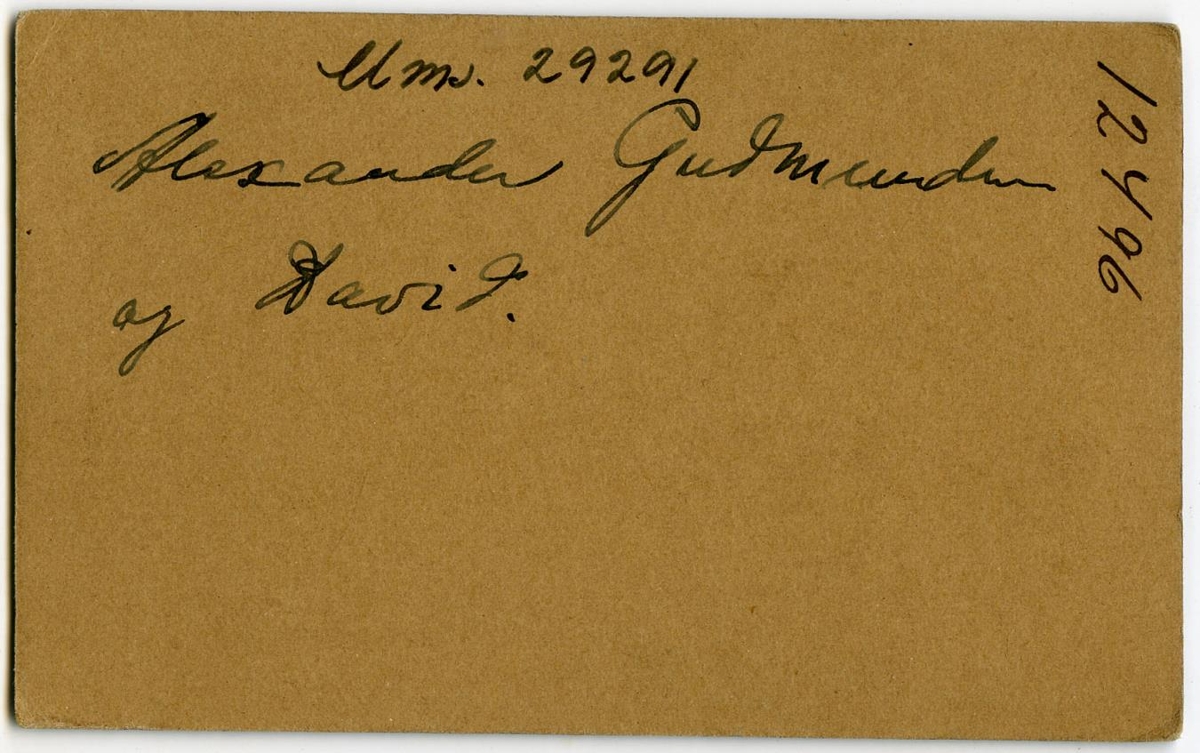 Ums. 29291
Alexander Guðmundsson
og Davið.
12496